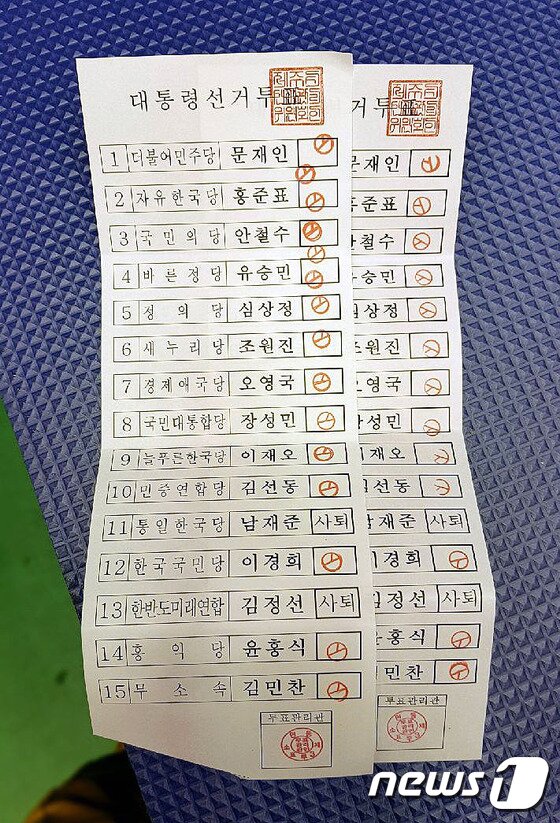 대통령선거투
1 더불어민주당 문재인
2 자유한국당 홍준표
3 국민의당 안철수
4 바른정당 유승민
5 정의당 심상정
6 새누리당 조원진
7 경제애국당 오영국
8 국민대통합당 장성민
9 늘푸른한국당 이재오
10 민중연합당 김선동
11 통일한국당 남재준 사퇴
12 한국국민당 이경희
13 한반도미래연합 김정선 사퇴
14 홍익당 윤홍식
15 무소속 김민찬
투표관리관
거투
문재인
홍준표
안철수
유승민
심상정
조원진
오영국
장성민
이재오
김선동
남재준 사퇴
이경희
김정선 사퇴
윤홍식
민찬
투표관리관
news1